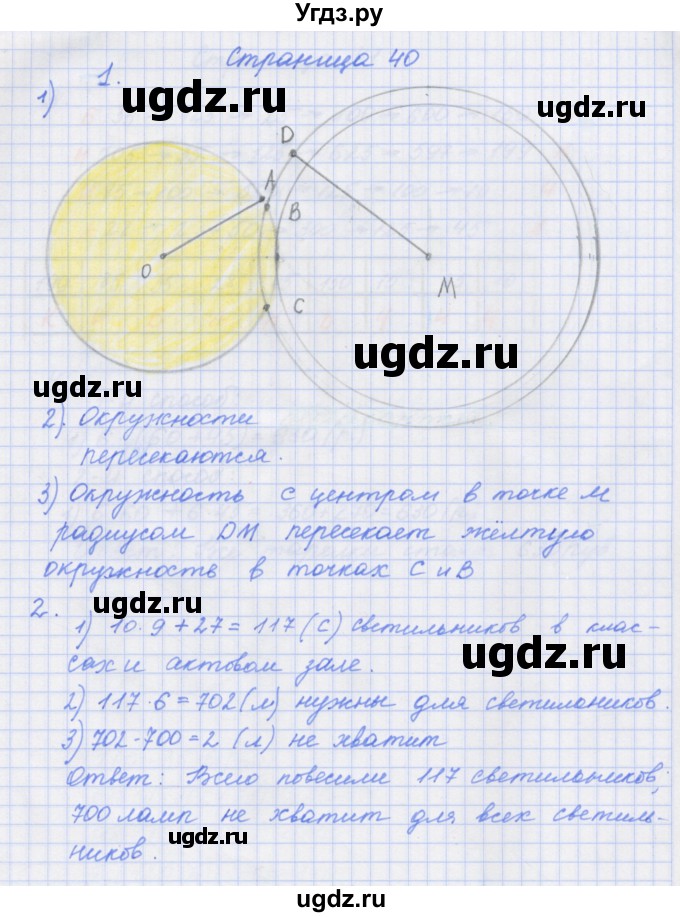 Угдз.ру
Страница 40
1.
1)
ugdz.ru
D
A
B
O
M
C
ugdz.ru
ugdz.ru
2). Окружности
пересекаются.
3) Окружность с центром в точке М
радиусом DM пересекает жёлтую
окружность в точках С и В
ugdz.ru
2.
1) 10·9+27=117(С) светильников в клас-
сах и актовом зале.
ugdz.ru
2) 117·6=702(л) нужны для светильников.
3) 702-700=2 (л) не хватит
Ответ: Всего повесили 117 светильников;
700 ламп не хватит для всех светиль-
ников.
ugdz.ru
ugdz.ru